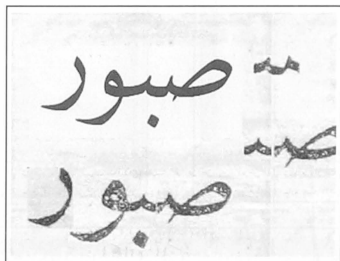 صبور
صبور